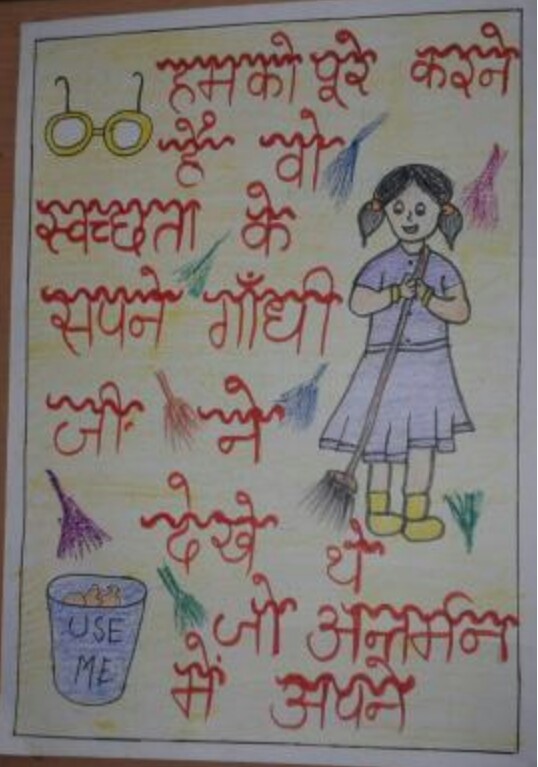 हमको पूरे करने
हैं वो
स्वच्छता के
सपने गाँधी
जी ने
देखे थे
जो अन्तर्मन
में अपने
USE
ME